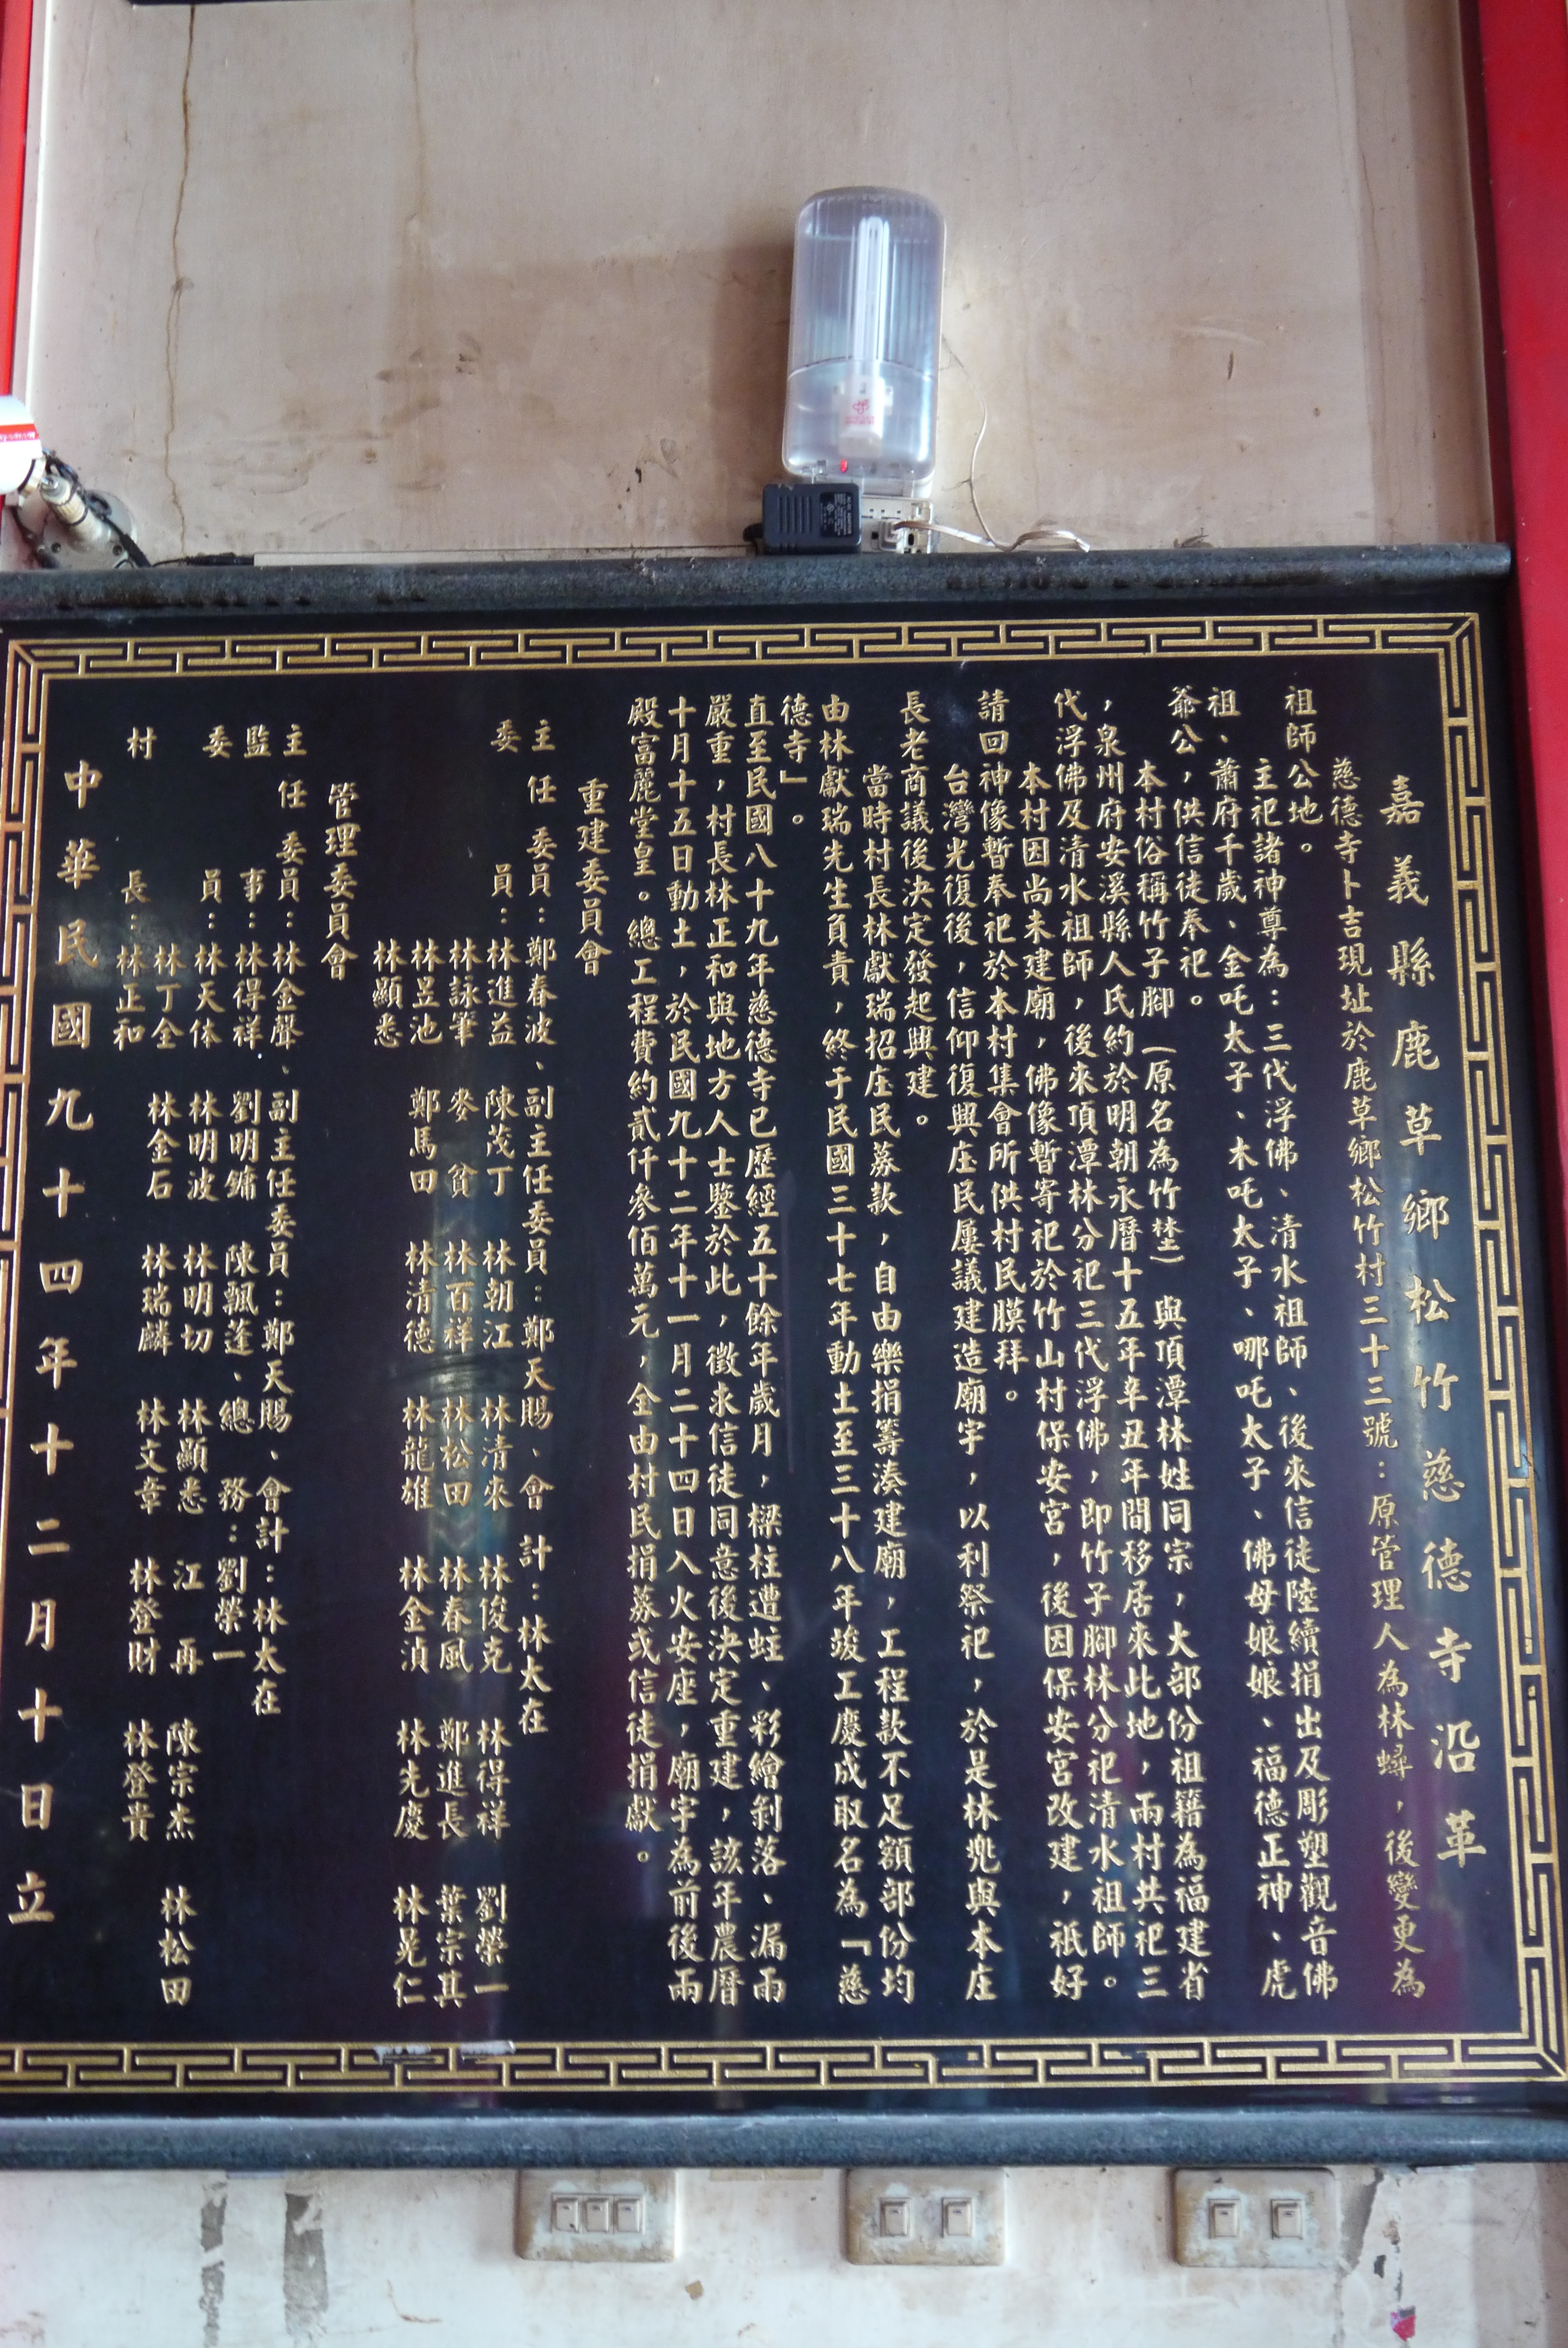 嘉義縣鹿草鄉松竹慈德寺沿革
慈德寺卜吉現址於鹿草鄉松竹村三十三號：原管理人為林蟳，後變更為
祖師公地。
主祀諸神尊為：三代浮佛、清水祖師、後來信徒陸續捐出及彫塑觀音佛
祖、蕭府千歲、金吒太子、木吒太子、哪吒太子、佛母娘娘、福德正神、虎
爺公，供信徒奉祀。
本村俗稱竹子腳（原名為竹埜）與頂潭林姓同宗，大部份祖籍為福建省
，泉州府安溪縣人氏約於明朝永曆十五年辛丑年間移居來此地，兩村共祀三
代浮佛及清水祖師，後來頂潭林分祀三代浮佛，即竹子腳林分祀清水祖師。
本村因尚未建廟，佛像暫寄祀於竹山村保安宮，後因保安宮改建，祇好
請回神像暫奉祀於本村集會所供村民膜拜。
台灣光復後，信仰復興庄民屢議建造廟宇，以利祭祀，於是林兠與本庄
長老商議後決定發起興建。
當時村長林獻瑞招庄民募款，自由樂捐籌湊建廟，工程款不足額部份均
由林獻瑞先生負責，終于民國三十七年動土至三十八年竣工慶成取名為「慈
德寺」。
直至民國八十九年慈德寺已歷經五十餘年歲月，樑柱遭蛀、彩繪剝落、漏雨
嚴重，村長林正和與地方人士鑒於此，徵求信徒同意後決定重建，該年農曆
十月十五日動土，於民國九十二年十一月二十四日入火安座，廟宇為前後兩
殿富麗堂皇。總工程費約貳仟參佰萬元，全由村民捐募或信徒捐獻。
重建委員會
主任委員：鄭春波、副主任委員：鄭天賜、會計：林太在
委員：林進益 陳茂丁 林朝江 林清來 林俊克 林得祥 劉榮一
林詠筆 麥貧 林百祥 林松田 林春風 鄭進長 葉宗其
林昱池 鄭馬田 林清德 林龍雄 林金湞 林先慶 林晃仁
林顯悉
管理委員會
主任委員：林金聲、副主任委員：鄭天賜、會計：林太在
監事：林得祥 劉明鏞 陳飄蓬、總務：劉榮一
委員：林天体 林明波 林明切 林顯悉 江再 陳宗杰 林松田
林丁全 林金石 林瑞麟 林文章 林登財 林登貴
村長：林正和
中華民國九十四年十二月十日立